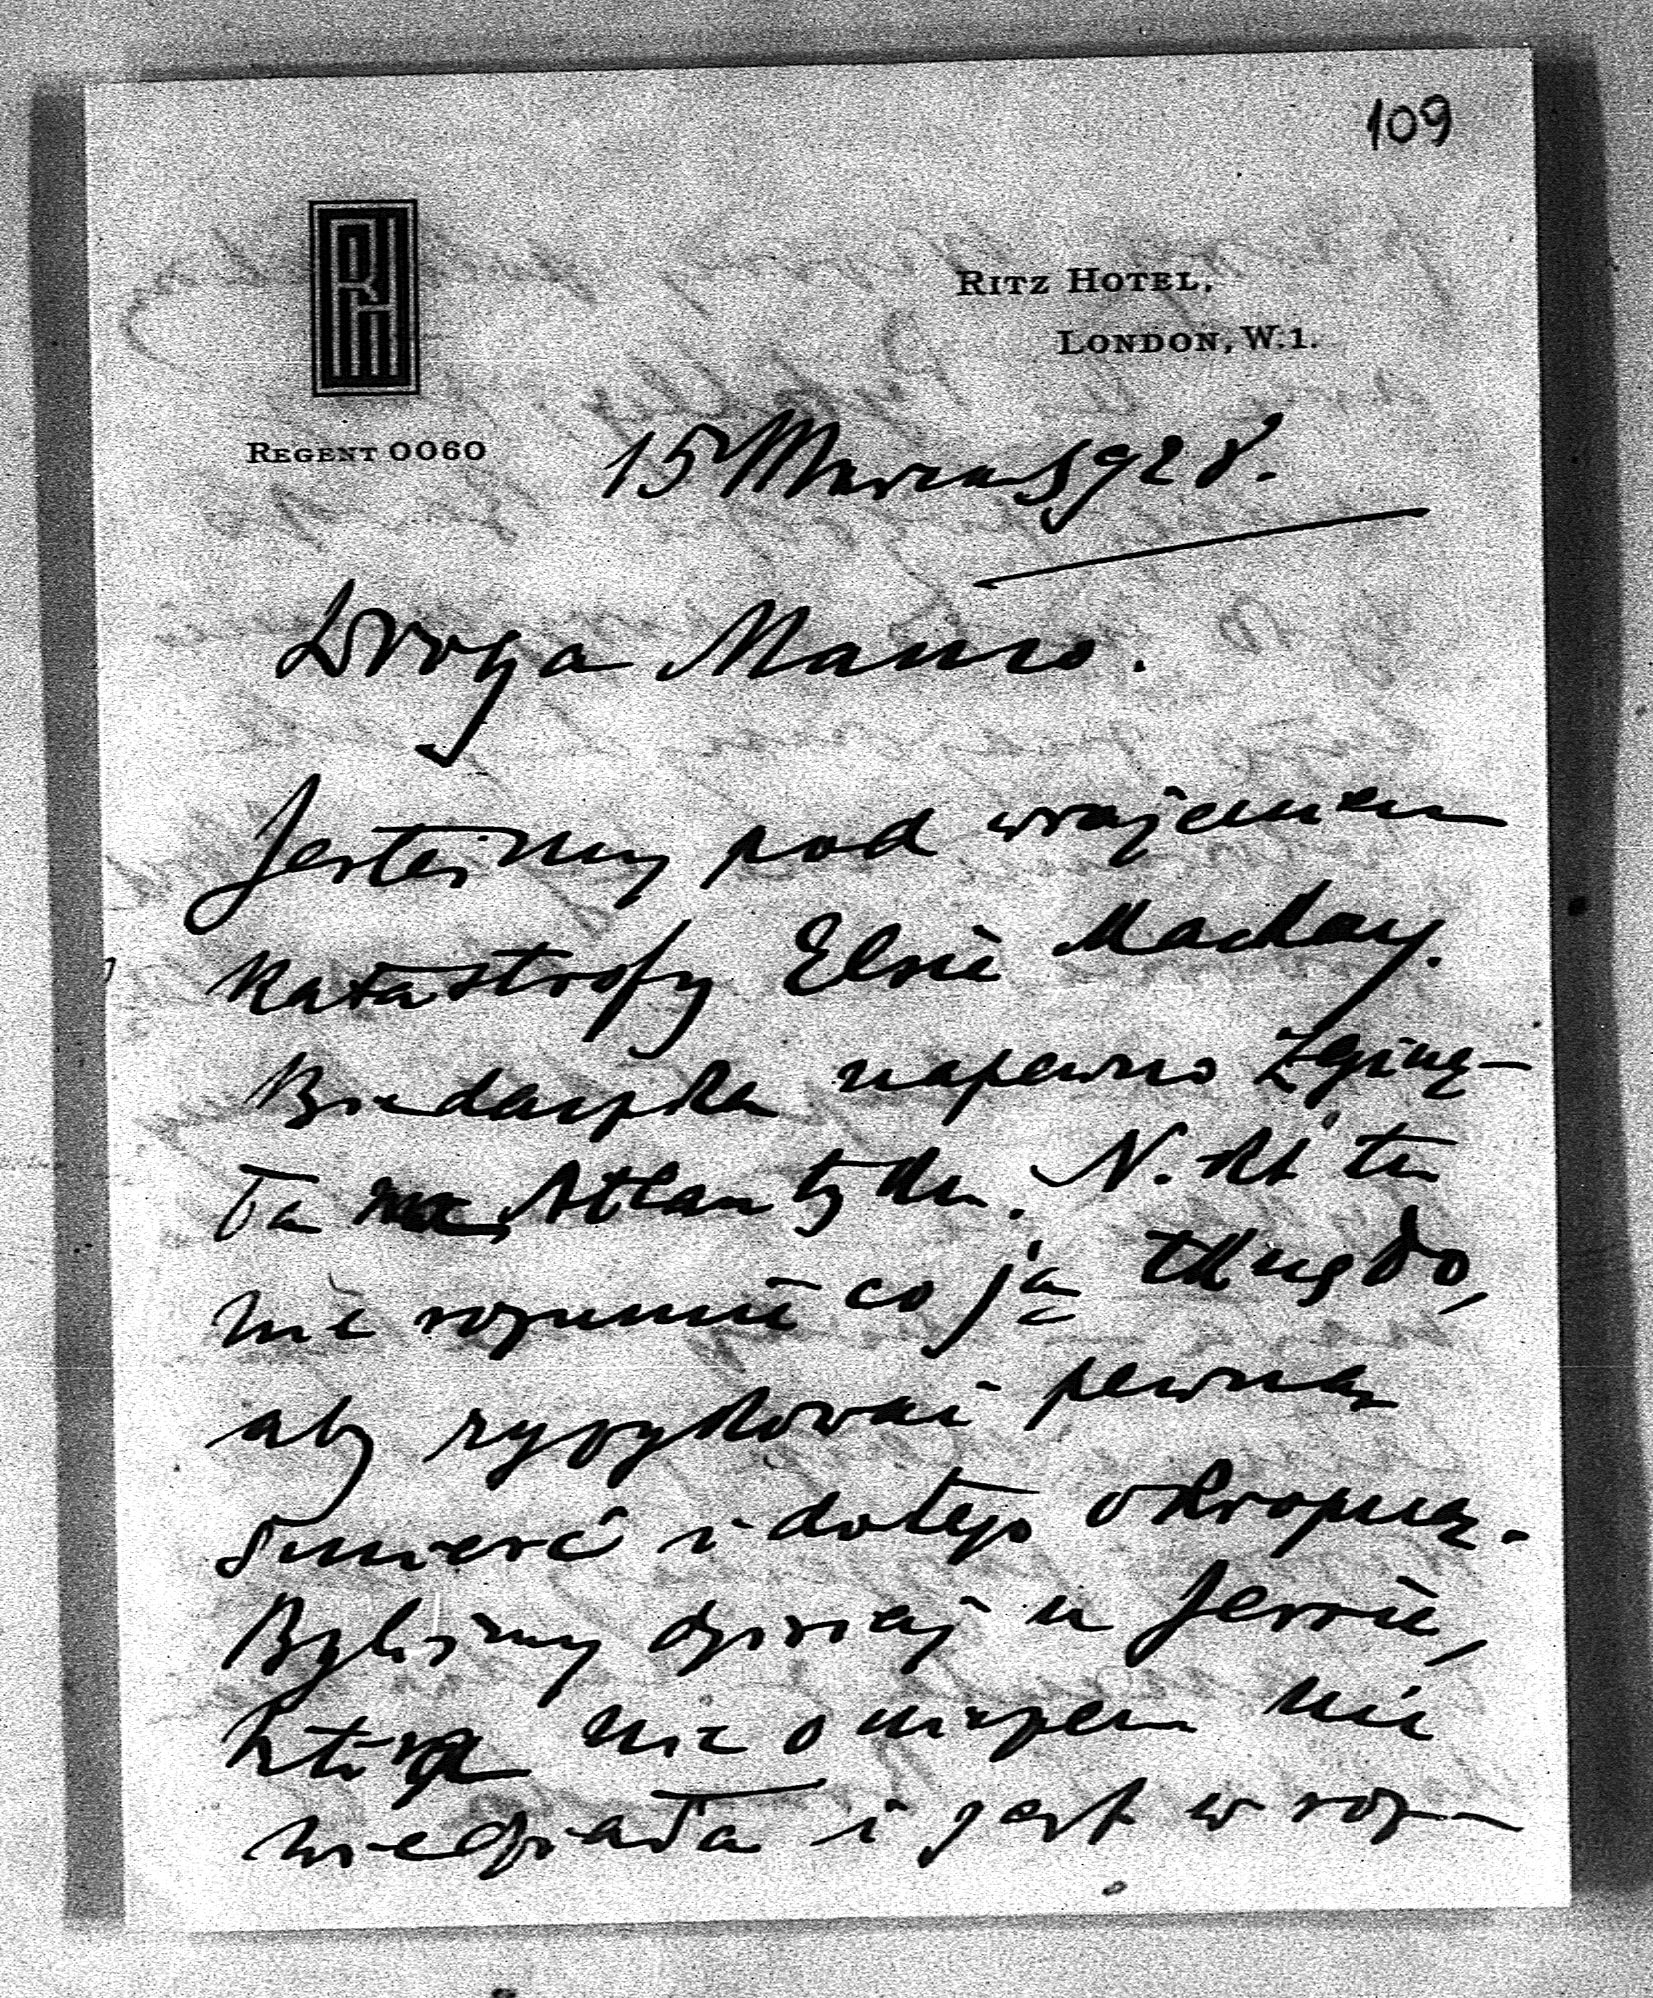 109
RH
RITZ HOTEL,
LONDON, W.1.
REGENT 0060
15 Marca 1928.
Droga Mamo.
Jesteśmy pod wrażeniem
Katastrofy Elsie Mackay.
Biedaczka napewno zginę-
ła na Atlantyku. Nikt tu
nie rozumie co ją tknęło,
aby ryzykować pewną
śmierć i dotego okropną.
Byliśmy dzisiaj u Jessie,
która nic o niczem nie
wiedziała i jest w roz-